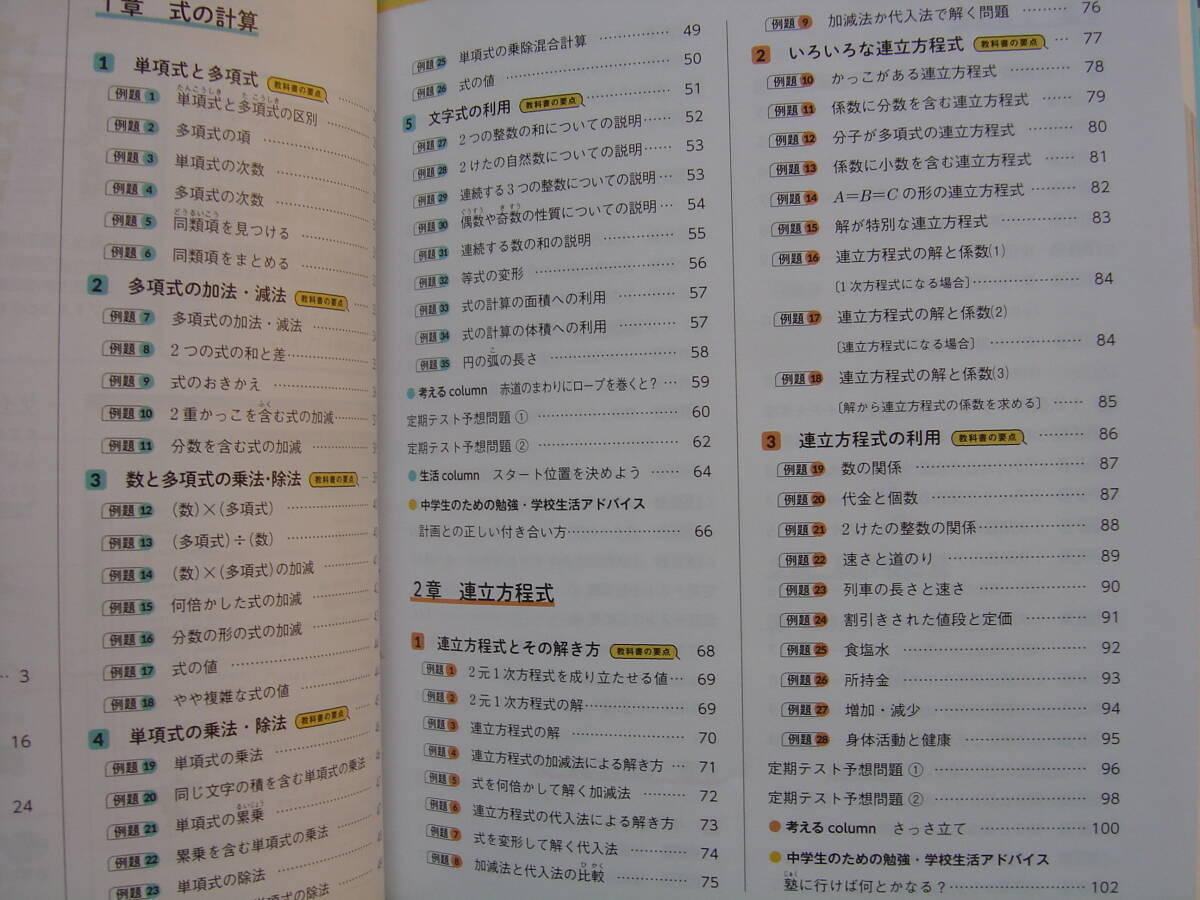 1章 式の計算
1 単項式と多項式 教科書の要点
例題1 単項式と多項式の区別
例題2 多項式の項
例題3 単項式の次数
例題4 多項式の次数
例題5 同類項を見つける
例題6 同類項をまとめる
2 多項式の加法・減法 教科書の要点
例題7 多項式の加法・減法
例題8 2つの式の和と差
例題9 式のおきかえ
例題10 2重かっこを含む式の加減
例題11 分数を含む式の加減
3 数と多項式の乗法・除法 教科書の要点
例題12 (数)×(多項式)
例題13 (多項式)÷(数)
例題14 (数)×(多項式)の加減
例題15 何倍かした式の加減
例題16 分数の形の式の加減
例題17 式の値
例題18 やや複雑な式の値
4 単項式の乗法・除法 教科書の要点
例題19 単項式の乗法
例題20 同じ文字の積を含む単項式の乗法
例題21 単項式の累乗
例題22 累乗を含む単項式の乗法
例題23 単項式の除法
含む単項式の除法
3
16
24
例題25 単項式の乗除混合計算 49
例題26 式の値 50
5 文字式の利用 教科書の要点 51
例題27 2つの整数の和についての説明 52
例題28 2けたの自然数についての説明 53
例題29 連続する3つの整数についての説明 53
例題30 偶数や奇数の性質についての説明 54
例題31 連続する数の和の説明 55
例題32 等式の変形 56
例題33 式の計算の面積への利用 57
例題34 式の計算の体積への利用 57
例題35 円の弧の長さ 58
考えるcolumn 赤道のまわりにロープを巻くと? 59
定期テスト予想問題① 60
定期テスト予想問題② 62
生活column スタート位置を決めよう 64
中学生のための勉強・学校生活アドバイス
計画との正しい付き合い方 66
2章 連立方程式
1 連立方程式とその解き方 教科書の要点 68
例題1 2元1次方程式を成り立たせる値 69
例題2 2元1次方程式の解 69
例題3 連立方程式の解 70
例題4 連立方程式の加減法による解き方 71
例題5 式を何倍かして解く加減法 72
例題6 連立方程式の代入法による解き方 73
例題7 式を変形して解く代入法 74
例題8 加減法と代入法の比較 75
例題9 加減法か代入法で解く問題 76
2 いろいろな連立方程式 教科書の要点 77
例題10 かっこがある連立方程式 78
例題11 係数に分数を含む連立方程式 79
例題12 分子が多項式の連立方程式 80
例題13 係数に小数を含む連立方程式 81
例題14 A=B=Cの形の連立方程式 82
例題15 解が特別な連立方程式 83
例題16 連立方程式の解と係数(1)
〔1次方程式になる場合〕 84
例題17 連立方程式の解と係数(2)
〔連立方程式になる場合〕 84
例題18 連立方程式の解と係数(3)
〔解から連立方程式の係数を求める〕 85
3 連立方程式の利用 教科書の要点 86
例題19 数の関係 87
例題20 代金と個数 87
例題21 2けたの整数の関係 88
例題22 速さと道のり 89
例題23 列車の長さと速さ 90
例題24 割引きされた値段と定価 91
例題25 食塩水 92
例題26 所持金 93
例題27 増加・減少 94
例題28 身体活動と健康 95
定期テスト予想問題① 96
定期テスト予想問題② 98
考えるcolumn さっさ立て 100
中学生のための勉強・学校生活アドバイス
塾に行けば何とかなる? 102